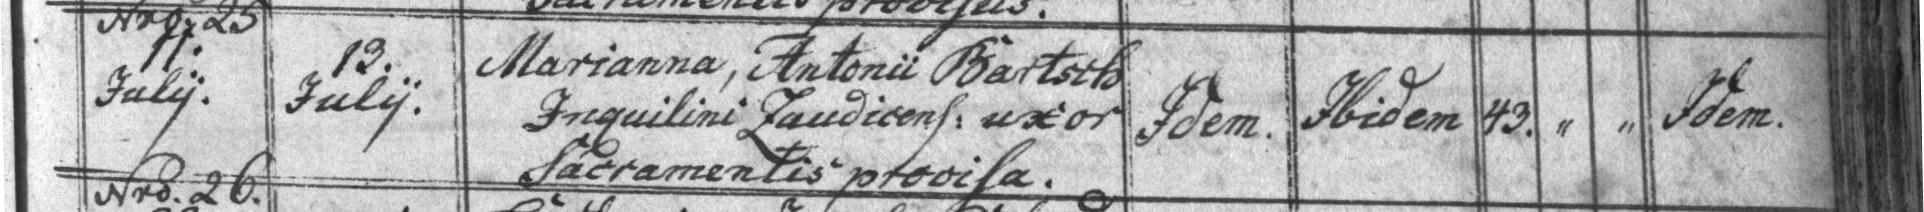 Sacramentis provisus.
Nro. 25
11. Julij.
13. Julij.
Marianna, Antonii Bartsch
Inquilini Zaudicens: uxor
Sacramentis provisa.
Idem.
Ibidem
43. „ „
Idem.
Nro. 26.